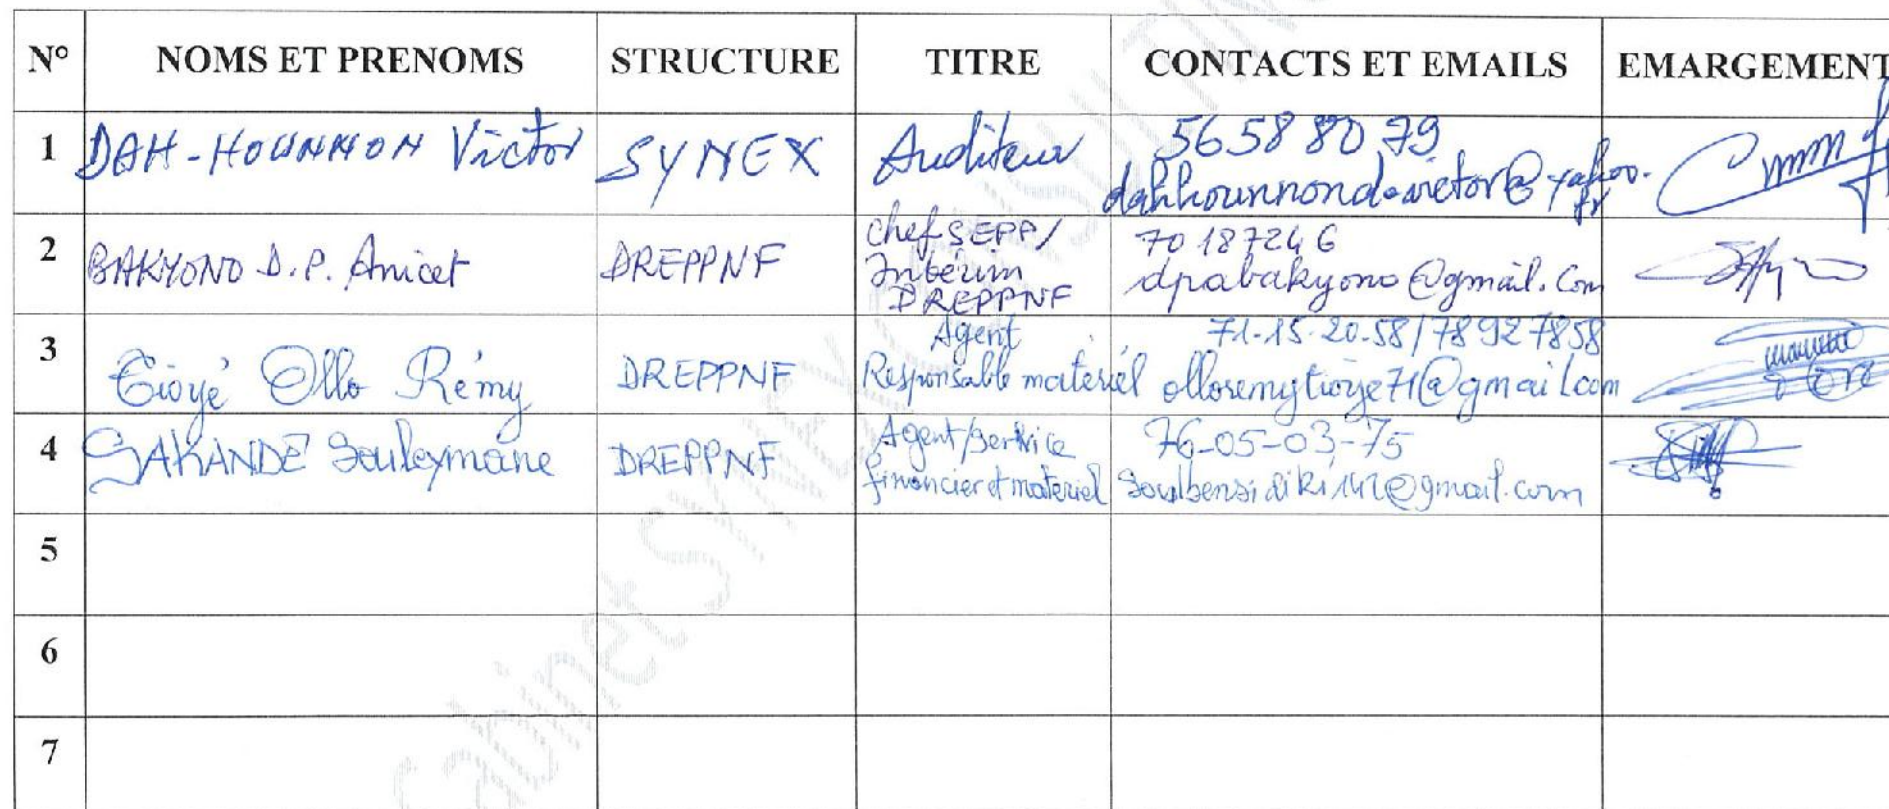 N° NOMS ET PRENOMS STRUCTURE TITRE CONTACTS ET EMAILS EMARGEMENT
1 DAH-HOUNNON Victor SYNEX Auditeur 56588079
dahhounnondovictor@yahoo.
fr
2 BAKYONO D.P. Anicet DREPPNF Chef SEPP/
Intérim
DREPPNF
70187246
dpabakyono@gmail.com
3 Tioyé Ollo Rémy DREPPNF Agent
Responsable matériel
71-15-20-58/78927858
olloremytioye71@gmail.com
4 SAKANDE Souleymane DREPPNF Agent/Service
financier et matériel
76-05-03-75
Soulbensidiki142@gmail.com
5
6
7
Cabinet SYNEX